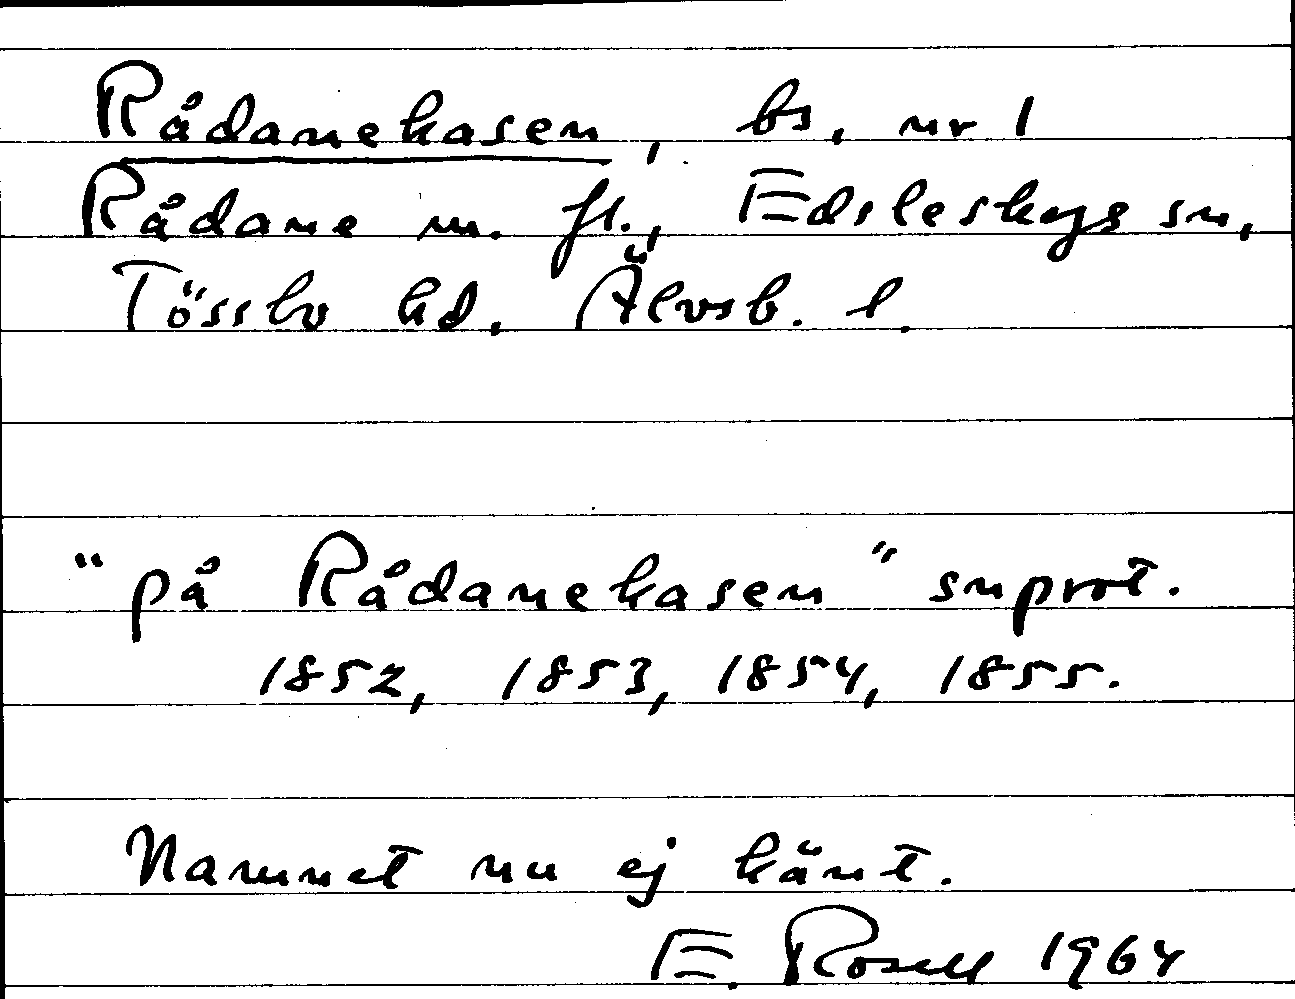 Rådanekasen, bs. nr 1
Rådane m. fl., Edsleskogs sn,
Tössbo hd. Älvsb. l.
"på Rådanekasen" snprot.
1852, 1853, 1854, 1855.
Namnet nu ej känt.
E. Rosell 1964